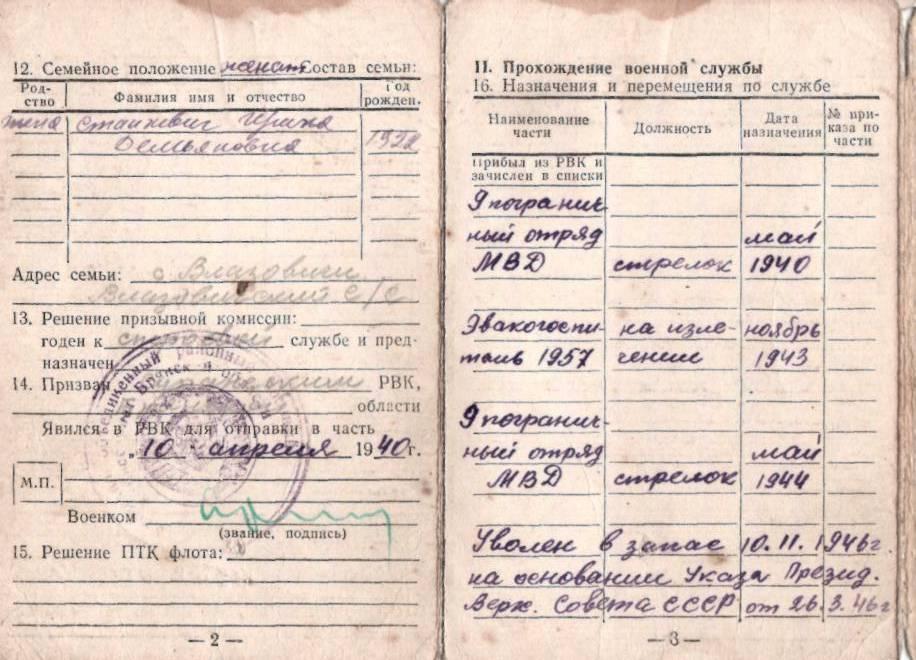 12. Семейное положение женат Состав семьи:
Род-
ство
Фамилия имя и отчество
Год
рожден.
жена Станкевич
Демьяновна
Адрес семьи: с Влазовичи
Влазовичский с/с
13. Решение призывной комиссии:
годен к строевой службе и пред-
назначен
14. Призван РВК,
области
Явился в РВК для отправки в часть
„10 апреля 1940г.
М.П.
Военком
(звание, подпись)
15. Решение ПТК флота:
— 2 —
II. Прохождение военной службы
16. Назначения и перемещения по службе
Наименование
части
Должность
Дата
назначения
№ при-
каза по
части
Прибыл из РВК и
зачислен в списки
9 погранич-
ный отряд май
МВД стрелок 1940
Эвакогоспи- на изле- ноябрь
таль 1957 чении 1943
9 погранич-
ный отряд май
МВД стрелок 1944
Уволен в запас 10.11.1946г.
на основании Указа Презид.
Верх. Совета СССР от 26.3.46г
— 3 —